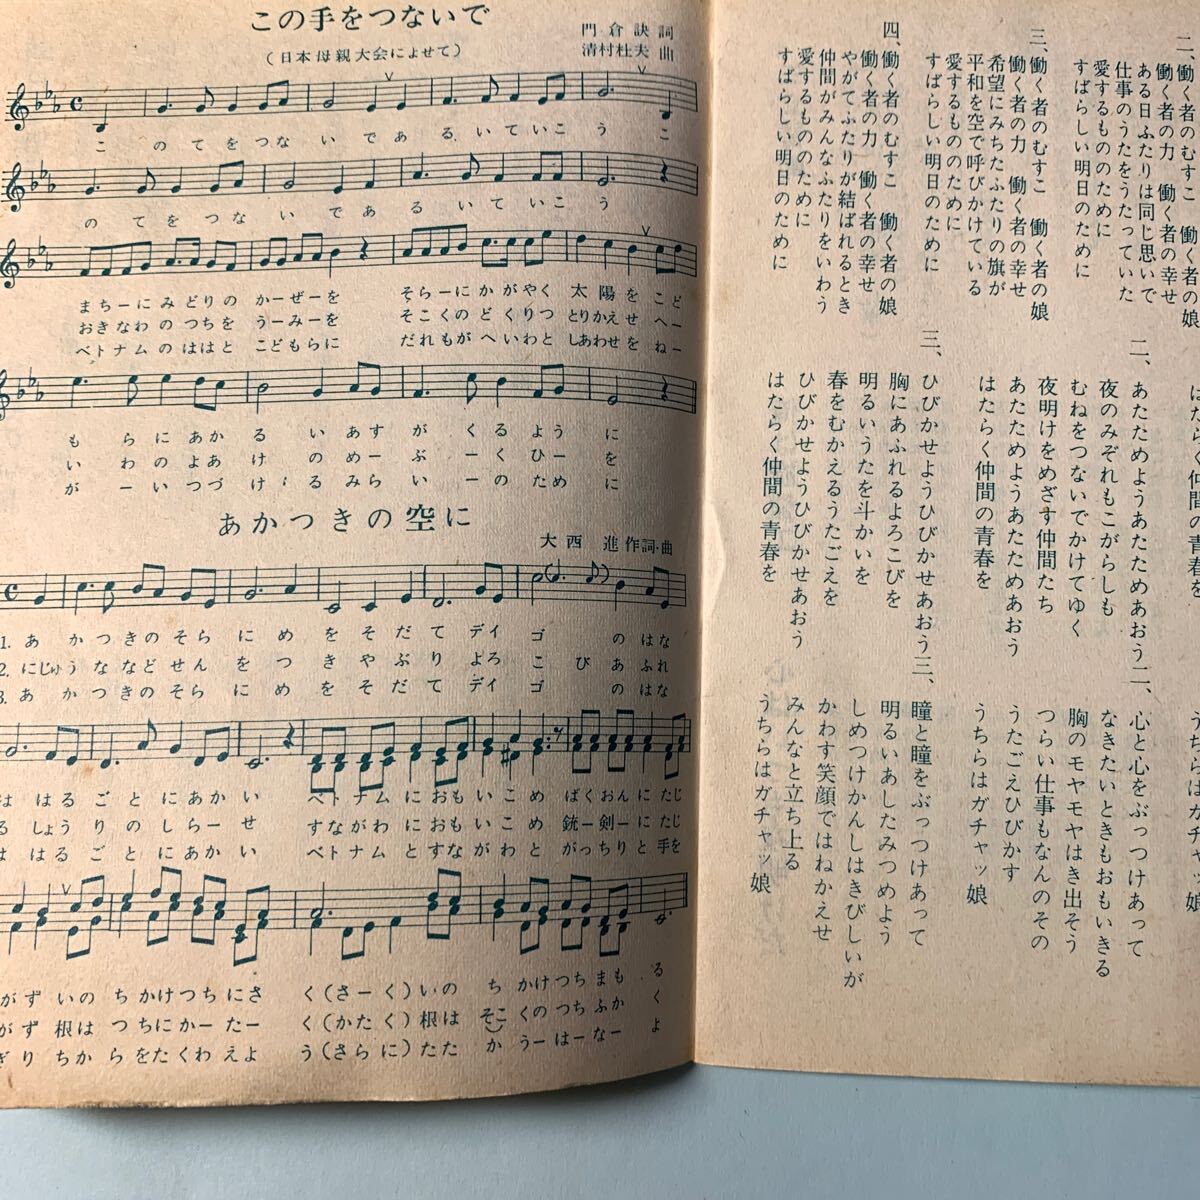 この手をつないで
(日本母親大会によせて)
門倉訣詞
清村杜夫曲
このてをつないであるいていこうこ
のてをつないであるいていこう
まちーにみどりのかーぜーを そらーにかがやく太陽をこど
おきなわのつちをうーみーを そこくのどくりつとりかえせへー
ベトナムのははとこどもらに だれもがへいわとしあわせをねー
もらにあかるいあすがくるように
いわのよあけのめーぶーくひーを
がーいつづけるみらいーのために
あかつきの空に
大西 進 作詞・曲
1. あかつきのそらにめをそだてデイゴのはな
2. にじゅうななどせんをつきやぶりよろこびあふれ
3. あかつきのそらにめをそだてデイゴのはな
はるごとにあかい ベトナムにおもいこめばくおんにたじ
るしょうりのしらーせ すながわにおもいこめ銃ー剣ーにたじ
はるごとにあかい ベトナムとすながわとがっちりと手を
がずいのちかけつちにさく(さーく)いのちかけつちまもる
がず根はつちにかーたーく(かたく)根はそこくのつちふかく
ぎりちからをたくわえよう(さらに)たたかうーはーなーよ
二、働く者のむすこ 働く者の娘
働く者の力 働く者の幸せ
ある日ふたりは同じ思いで
仕事のうたをうたっていた
愛するもののために
すばらしい明日のために
三、働く者のむすこ 働く者の娘
働く者の力 働く者の幸せ
希望にみちたふたりの旗が
平和を空で呼びかけている
愛するもののために
すばらしい明日のために
四、働く者のむすこ 働く者の娘
働く者の力 働く者の幸せ
やがてふたりが結ばれるとき
仲間がみんなふたりをいわう
愛するもののために
すばらしい明日のために
はたらく仲間の青春を
二、あたためようあたためあおう
夜のみぞれもこがらしも
むねをつないでかけてゆく
夜明けをめざす仲間たち
あたためようあたためあおう
はたらく仲間の青春を
三、ひびかせようひびかせあおう
胸にあふれるよろこびを
明るいうたを斗かいを
春をむかえるうたごえを
ひびかせようひびかせあおう
はたらく仲間の青春を
うちらはガチャッ娘
二、心と心をぶっつけあって
なきたいときもおもいきる
胸のモヤモヤはき出そう
つらい仕事もなんのその
うたごえひびかす
うちらはガチャッ娘
三、瞳と瞳をぶっつけあって
明るいあしたみつめよう
しめつけかんしはきびしいが
かわす笑顔ではねかえせ
みんなと立ち上る
うちらはガチャッ娘